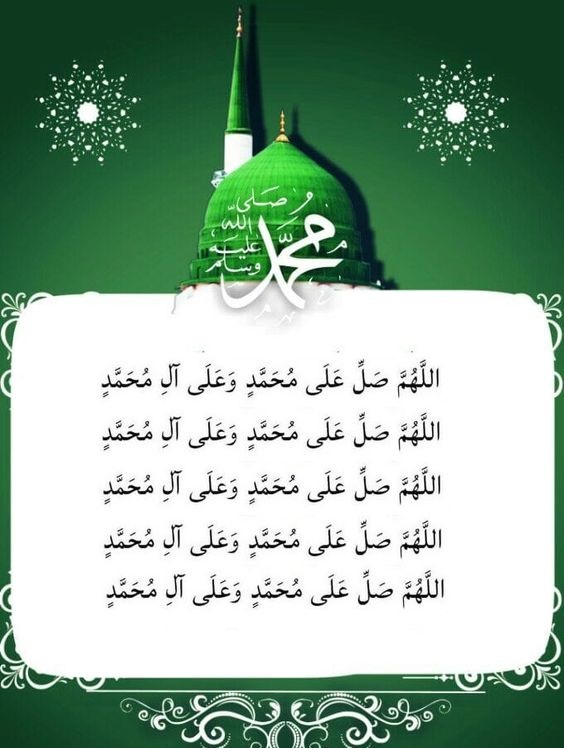 محمد صلى الله عليه وسلم
اللَّهُمَّ صَلِّ عَلَى مُحَمَّدٍ وَعَلَى آلِ مُحَمَّدٍ
اللَّهُمَّ صَلِّ عَلَى مُحَمَّدٍ وَعَلَى آلِ مُحَمَّدٍ
اللَّهُمَّ صَلِّ عَلَى مُحَمَّدٍ وَعَلَى آلِ مُحَمَّدٍ
اللَّهُمَّ صَلِّ عَلَى مُحَمَّدٍ وَعَلَى آلِ مُحَمَّدٍ
اللَّهُمَّ صَلِّ عَلَى مُحَمَّدٍ وَعَلَى آلِ مُحَمَّدٍ